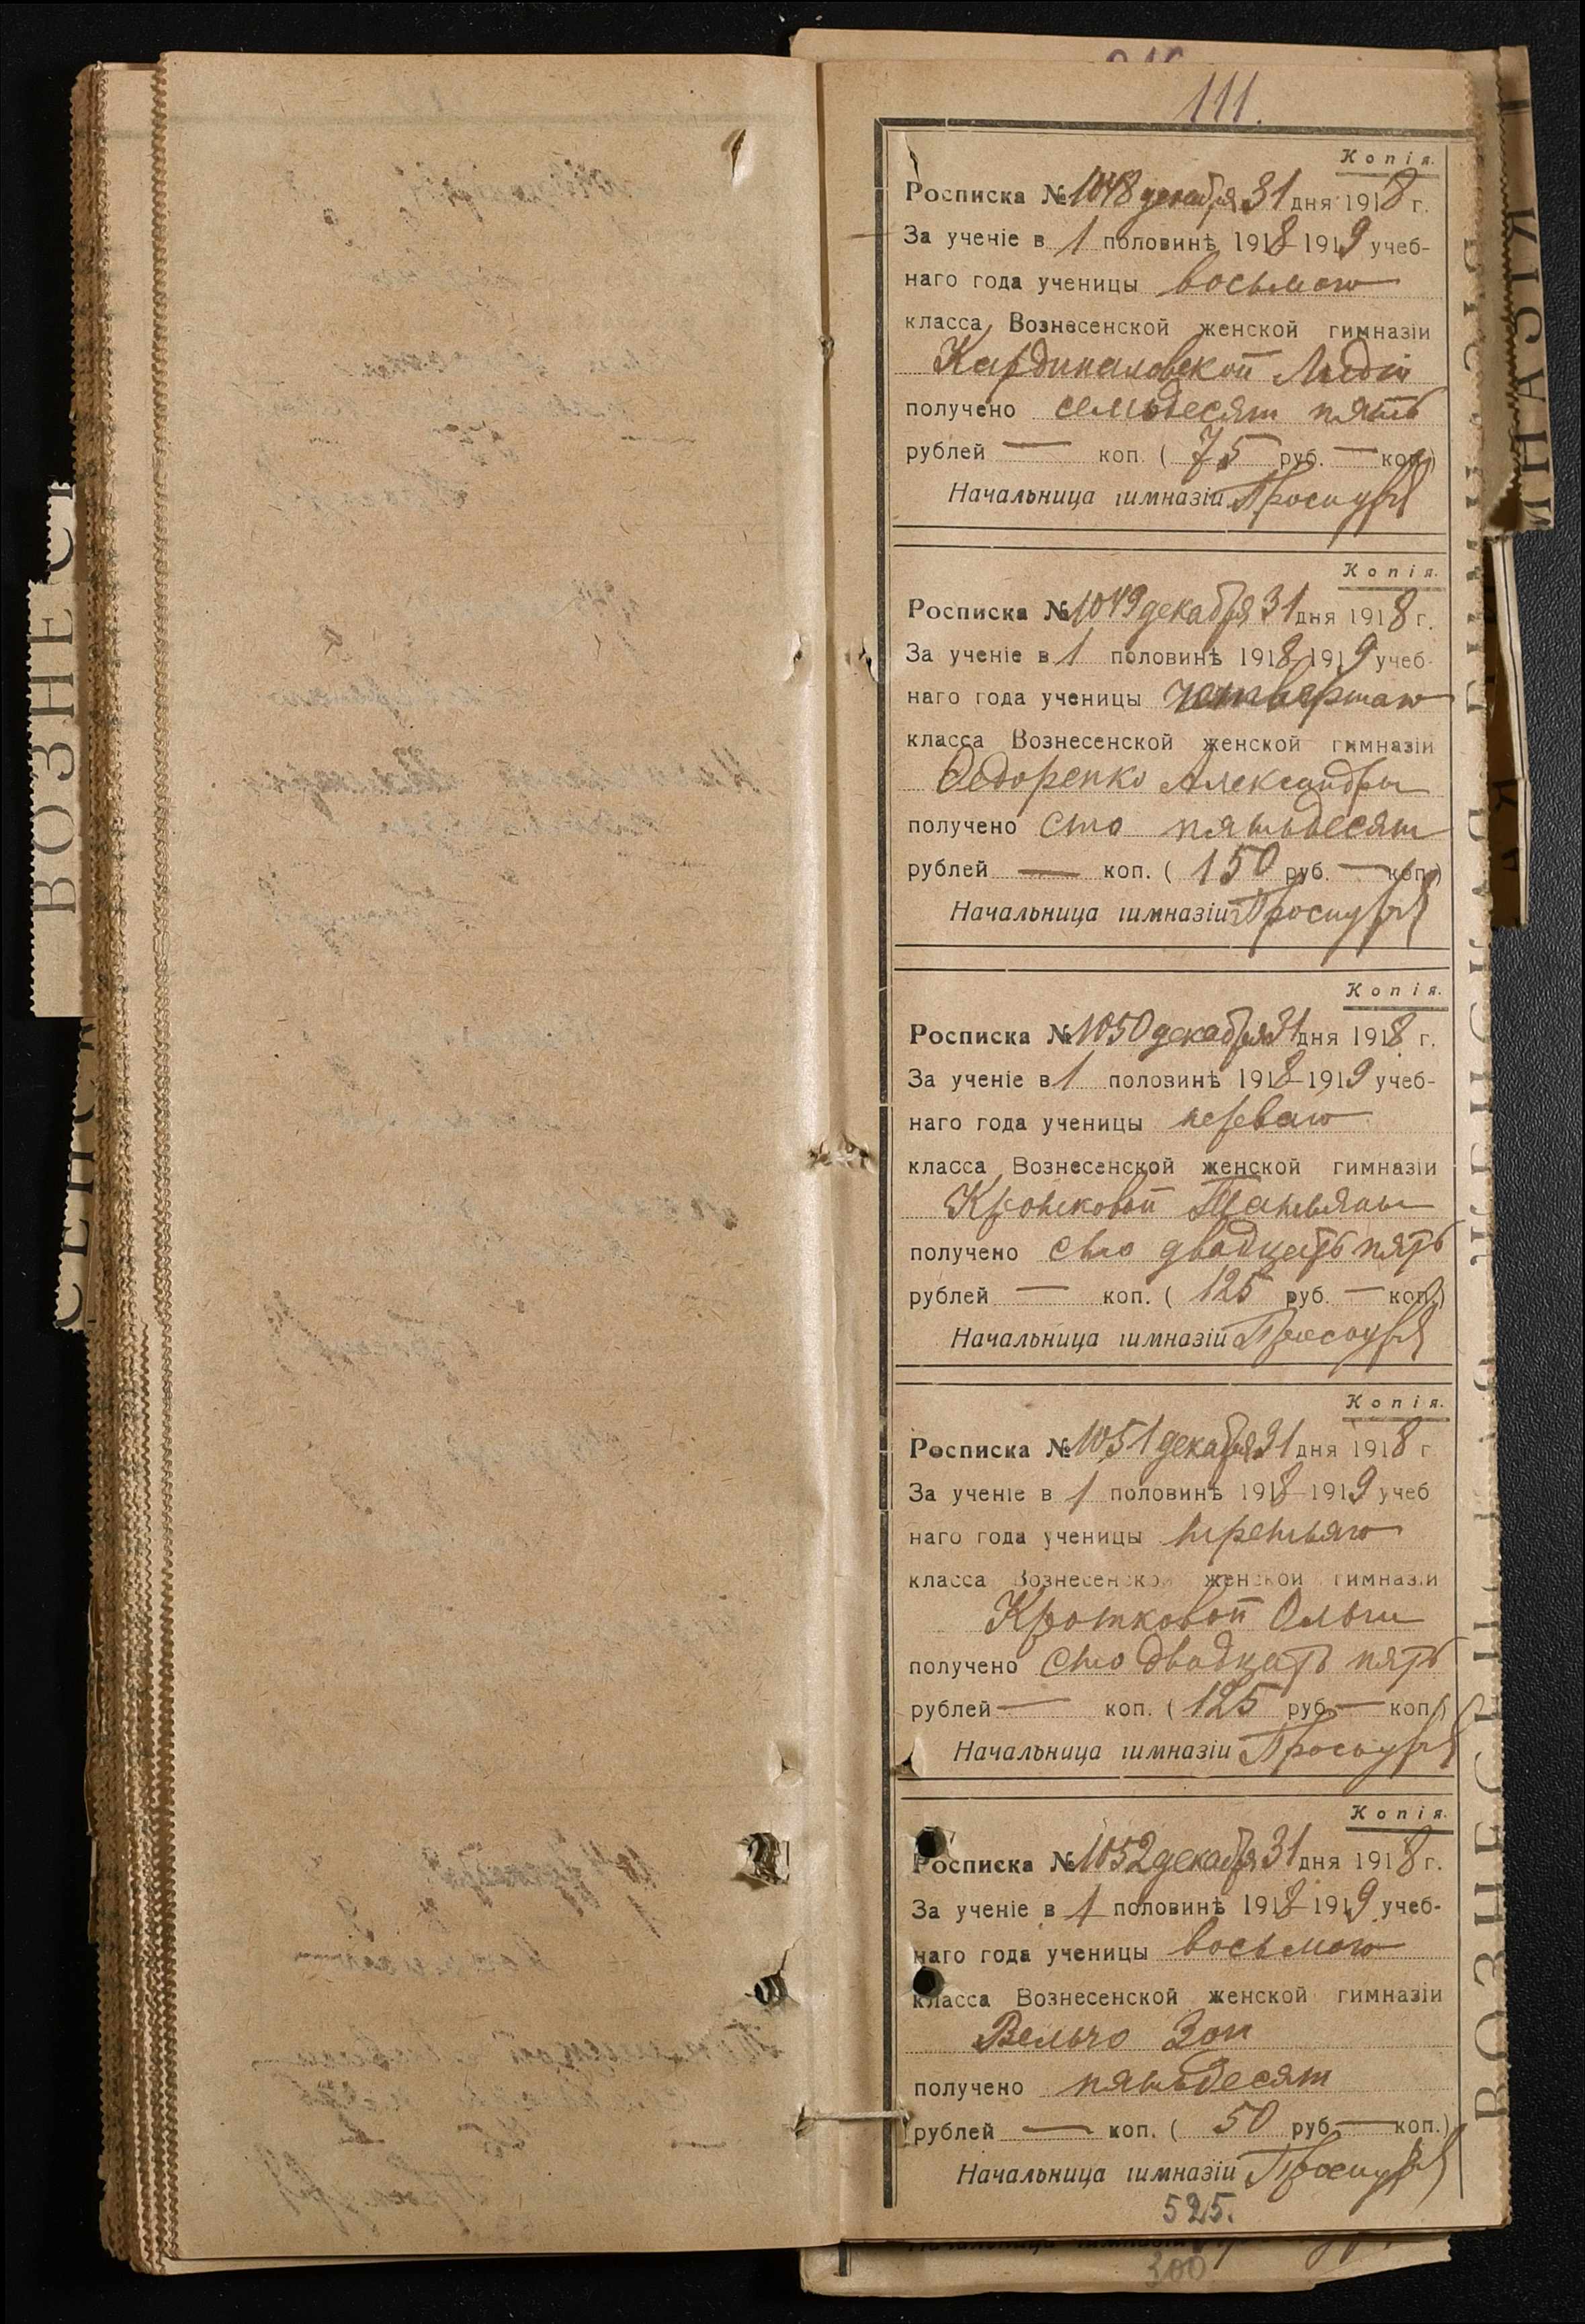 111.
Копія.
Росписка № 1048 декабря 31 дня 1918 г.
За ученіе в 1 половинѣ 1918-1919 учеб-
наго года ученицы восьмого
класса Вознесенской женской гимназіи
Кардиналовской Лидіи
получено семьдесят пять
рублей — коп. ( 75 руб. — коп.)
Начальница гимназіи
Копія.
Росписка № 1049 декабря 31 дня 1918 г.
За ученіе в 1 половинѣ 1918-1919 учеб-
наго года ученицы четвертаго
класса Вознесенской женской гимназіи
Федоренко Александры
получено сто пятьдесят
рублей — коп. ( 150 руб. — коп.)
Начальница гимназіи
Копія.
Росписка № 1050 декабря 31 дня 1918 г.
За ученіе в 1 половинѣ 1918-1919 учеб-
наго года ученицы перваго
класса Вознесенской женской гимназіи
Кротковой Татьяны
получено сто двадцать пять
рублей — коп. ( 125 руб. — коп.)
Начальница гимназіи
Копія.
Росписка № 1051 декабря 31 дня 1918 г
За ученіе в 1 половинѣ 1918-1919 учеб
наго года ученицы третьяго
класса Вознесенской женской гимназіи
Кротковой Ольги
получено сто двадцать пять
рублей — коп. ( 125 руб. — коп.)
Начальница гимназіи
Копія.
Росписка № 1052 декабря 31 дня 1918 г.
За ученіе в 1 половинѣ 1918-1919 учеб-
наго года ученицы восьмого
класса Вознесенской женской гимназіи
Вельчо Зои
получено пятьдесят
рублей — коп. ( 50 руб. — коп.)
Начальница гимназіи
525.
300
ВОЗНЕС